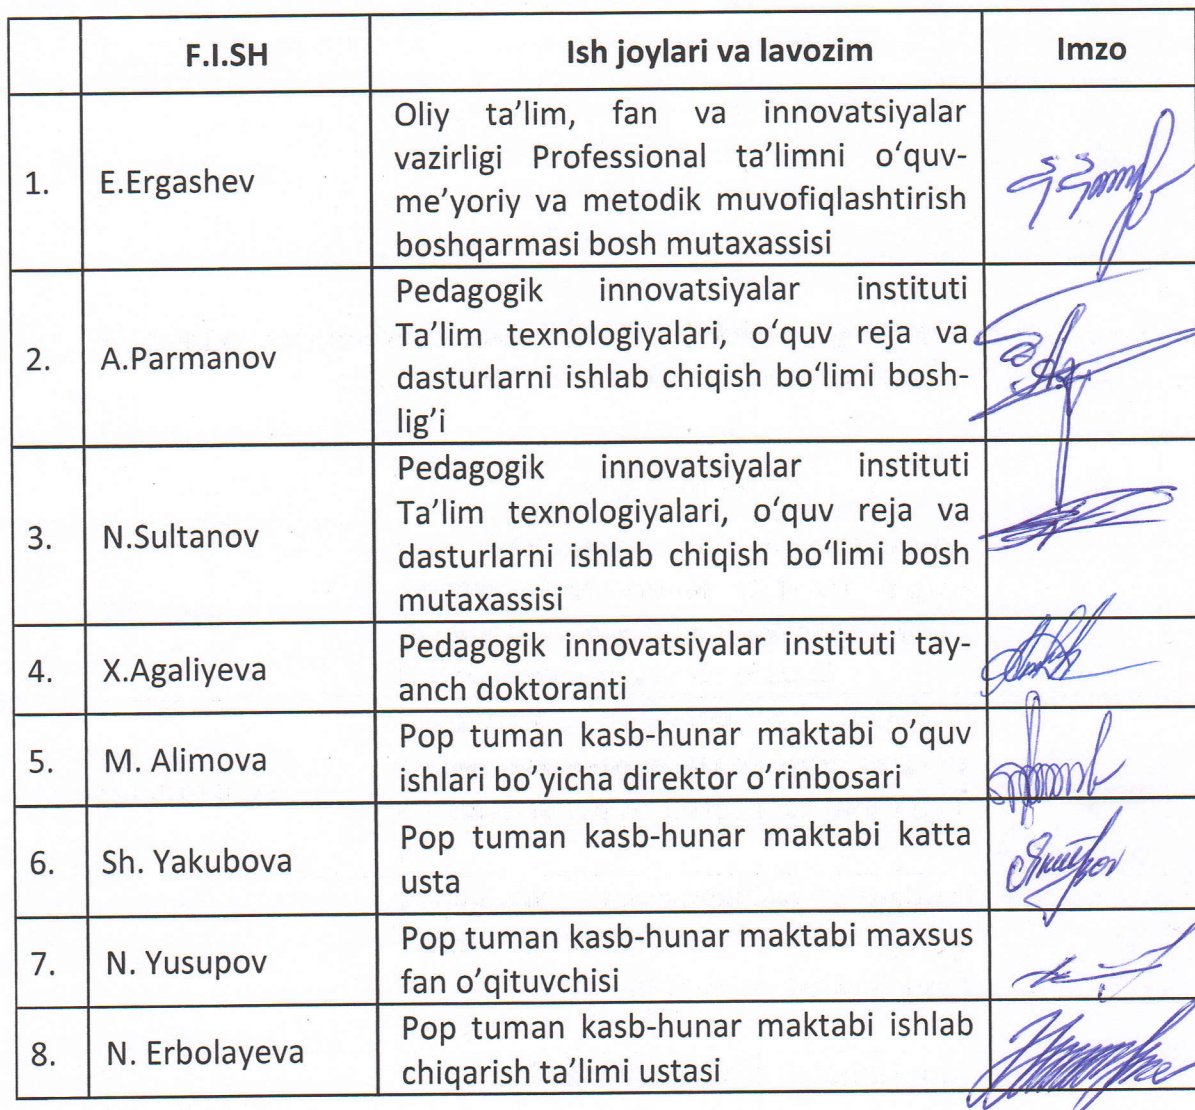 F.I.SH Ish joylari va lavozim Imzo
1. E.Ergashev Oliy ta’lim, fan va innovatsiyalar
vazirligi Professional ta’limni o‘quv-
me’yoriy va metodik muvofiqlashtirish
boshqarmasi bosh mutaxassisi
2. A.Parmanov Pedagogik innovatsiyalar instituti
Ta’lim texnologiyalari, o‘quv reja va
dasturlarni ishlab chiqish bo‘limi bosh-
lig’i
3. N.Sultanov Pedagogik innovatsiyalar instituti
Ta’lim texnologiyalari, o‘quv reja va
dasturlarni ishlab chiqish bo‘limi bosh
mutaxassisi
4. X.Agaliyeva Pedagogik innovatsiyalar instituti tay-
anch doktoranti
5. M. Alimova Pop tuman kasb-hunar maktabi o’quv
ishlari bo’yicha direktor o’rinbosari
6. Sh. Yakubova Pop tuman kasb-hunar maktabi katta
usta
7. N. Yusupov Pop tuman kasb-hunar maktabi maxsus
fan o’qituvchisi
8. N. Erbolayeva Pop tuman kasb-hunar maktabi ishlab
chiqarish ta’limi ustasi